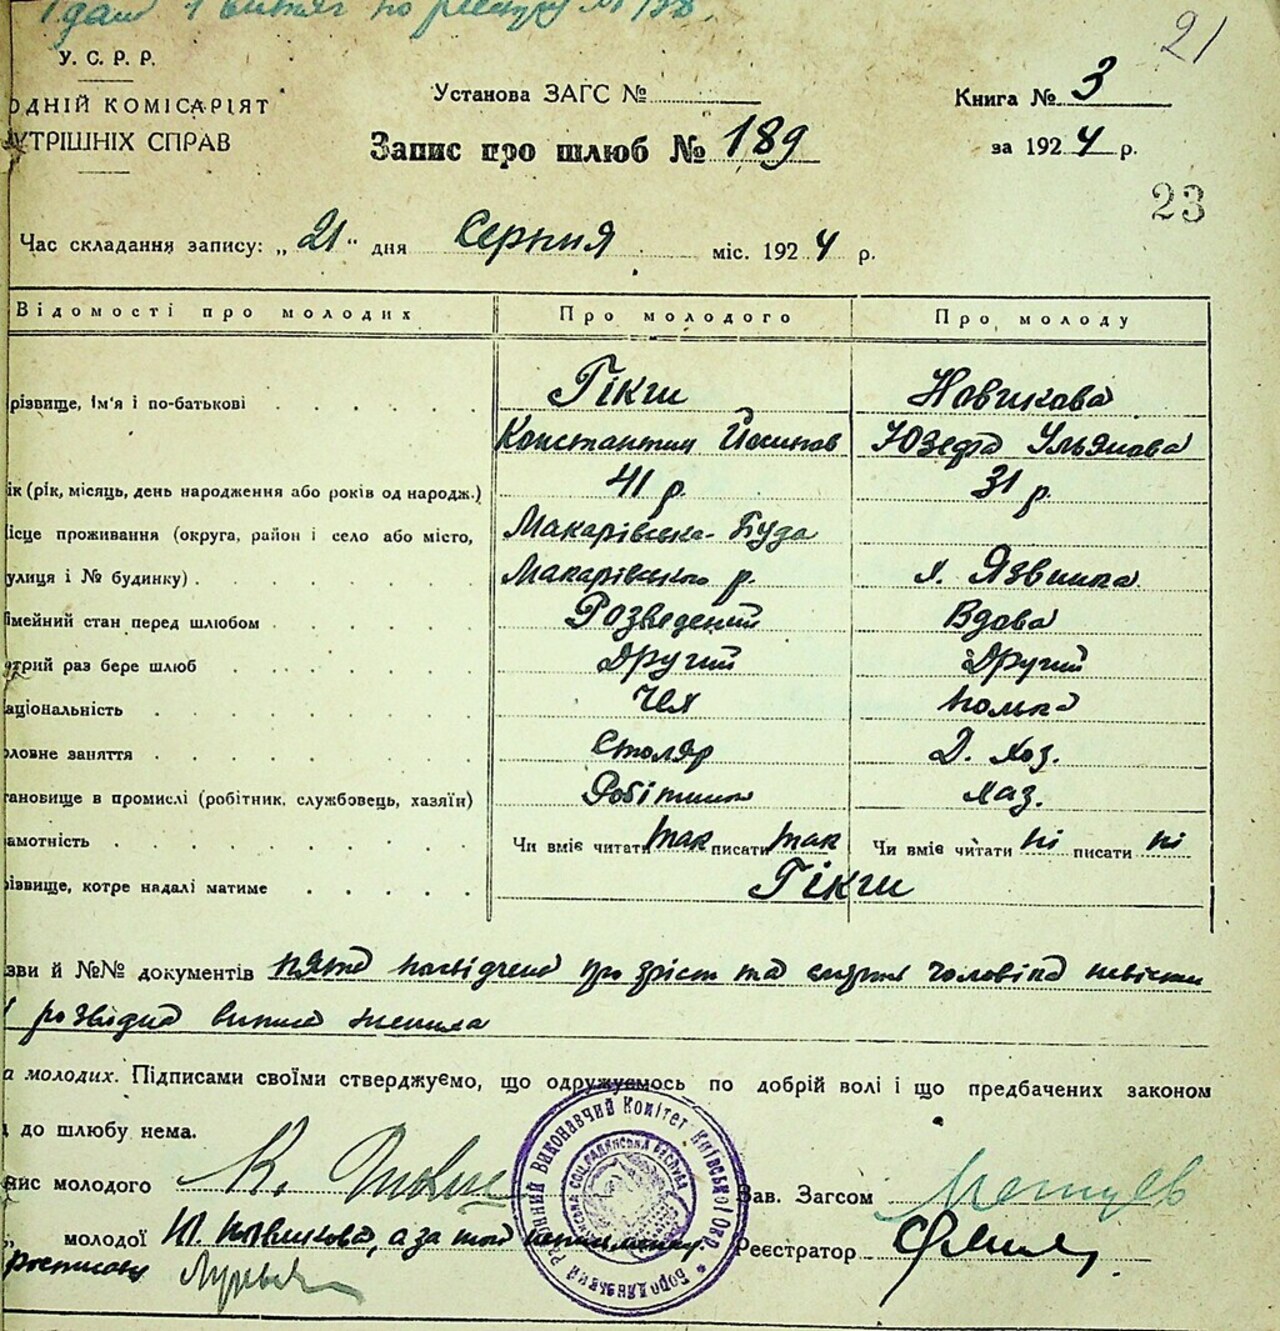 У. С. Р. Р.
21
ОДНІЙ КОМІСАРІЯТ
УТРІШНІХ СПРАВ
Установа ЗАГС №
Книга № 3
Запис про шлюб № 189
за 1924 р.
23
Час складання запису: „21" дня Серпня міс. 1924 р.
Відомості про молодих Про молодого Про молоду
різвище, Ім'я і по-батькові Гікиш Новикова
Константин Йосипов Юзефа Ульянова
ік (рік, місяць, день народження або років од народж.) 41 р. 31 р.
ісце проживання (округа, район і село або місто, Макарівська-Буда
улиця і № будинку) Макарівського р. х. Язвинка
імейний стан перед шлюбом Розведений Вдова
отрий раз бере шлюб Другий Другий
аціональність Чех полька
оловне заняття Столяр Д. Хоз.
тановище в промислі (робітник, службовець, хазяїн) Робітник Хаз.
амотність Чи вміє читати так писати так Чи вміє читати ні писати ні
ізвище, котре надалі матиме Гікиш
зви й №№ документів про зріст та смерть чоловіка
розвідна
а молодих. Підписами своїми стверджуємо, що одружуємось по добрій волі і що предбачених законом
до шлюбу нема.
ис молодого К.
Зав. Загсом
„ молодої Ю. Новикова, а за
Реєстратор
Бородянський Районний Виконавчий Комітет Київської Окр.